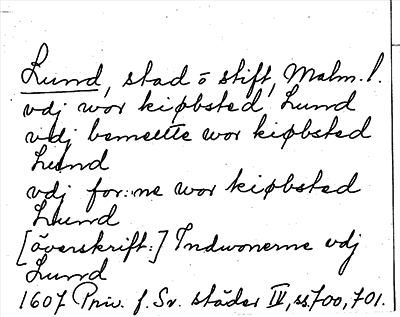 Lund, stad o stift, Malm. l.
vdj wor kiøbsted Lund
vdj bemeelte wor kiøbsted
Lund
vdj for:ne wor kiøbsted
Lund
[överskrift:] Indwonerne vdj
Lund
1607 Priv. f. Sv. städer IV, ss 700, 701.